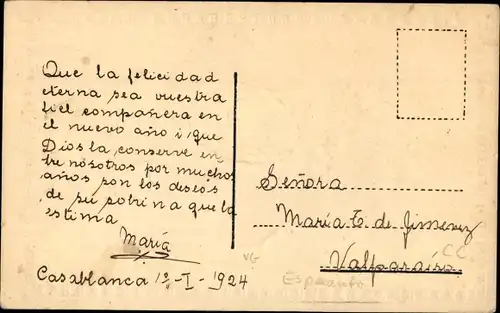 Que la felicidad
eterna sea vuestra
fiel compañera en
el nuevo año i que
Dios la conserve en-
tre nosotros por muchos
años son los deseos
de su sobrina que la
estima
María
Casablanca 1º-I-1924
Señora
María T. de Jimenez
Valparaíso
VG
CC
Esperanto